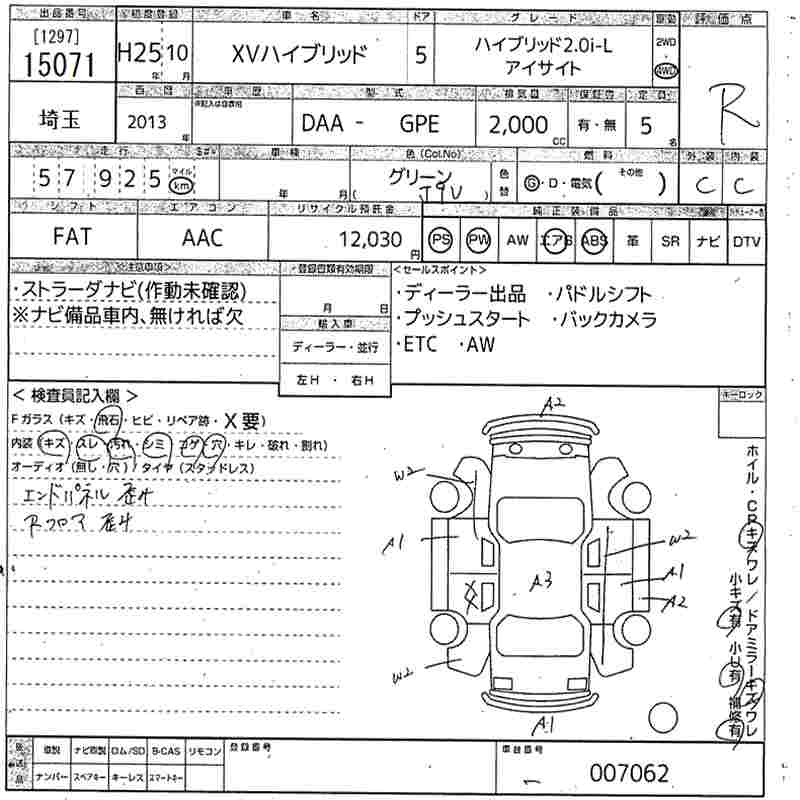 出品番号 初度登録 車名 ドア グレード 駆動 評価点
[1297]
15071 H25年 10月 XVハイブリッド 5 ハイブリッド2.0i-L アイサイト 2WD・4WD R
西暦 車歴 型式 排気量 保証書 定員
埼玉 2013年 DAA - GPE 2,000cc 有・無 5名
走行 車検 色(Col.No) 燃料 外装 内装
57925 マイル km 年 月 グリーン (J9V) 色替 G・D・電気( その他 ) C C
シフト エアコン リサイクル預託金 純正装備品
FAT AAC 12,030円 PS PW AW エアB ABS 革 SR ナビ DTV
<注意事項> 登録書類有効期限 <セールスポイント>
・ストラーダナビ(作動未確認) 月 日 ・ディーラー出品 ・パドルシフト
※ナビ備品車内、無ければ欠 輸入車 ・プッシュスタート ・バックカメラ
ディーラー・並行 ・ETC ・AW
左H ・ 右H
< 検査員記入欄 > キーロック
Fガラス (キズ・飛石・ヒビ・リペア跡・X要)
内装 (キズ・スレ・汚れ・シミ・コゲ・穴・キレ・破れ・割れ)
オーディオ (無し・穴) / タイヤ (スタッドレス)
エンドパネル 歪み
Rフロア 歪み
A2
W2
A1
W2
A1
A2
A3
W2
A1
ホイル・CRキズワレ/ドアミラーキズワレ
小キズ有 小U有 補修有
後送品 車検 ナビ取説 ロム/SD B-CAS リモコン 登録番号 車台番号
ナンバー スペアキー キーレス スマートキー 007062